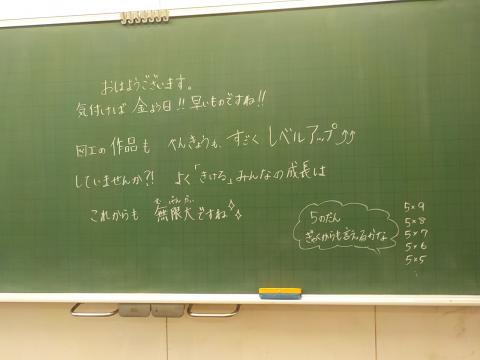 おはようございます。
気付けば 金よう日!! 早いものですね!!
図工の作品も べんきょうも、すごくレベルアップ⤴⤴
していませんか?! よく「きける」みんなの成長は
むげんだい
これからも 無限大ですね✧✧
5のだん
ぎゃくからも言えるかな
5×9
5×8
5×7
5×6
5×5
: